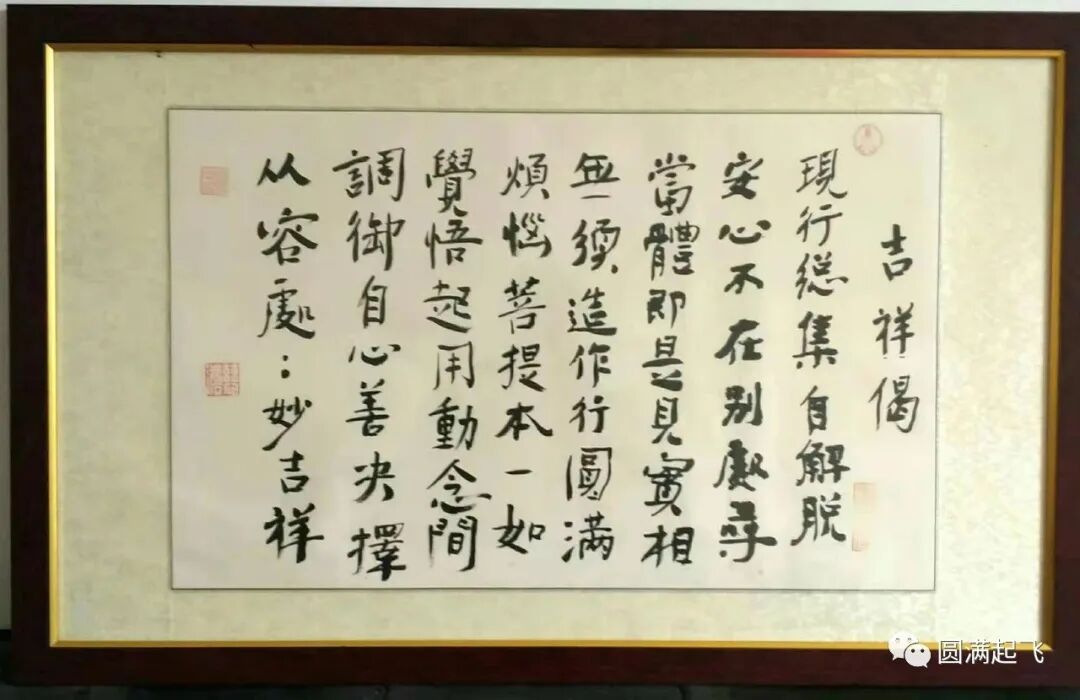 吉祥偈
現行総集自解脱
安心不在别處尋
當體即是見實相
無須造作行圓满
煩惱菩提本一如
覺悟起用動念間
調御自心善决擇
从容處:妙吉祥
圆满起飞